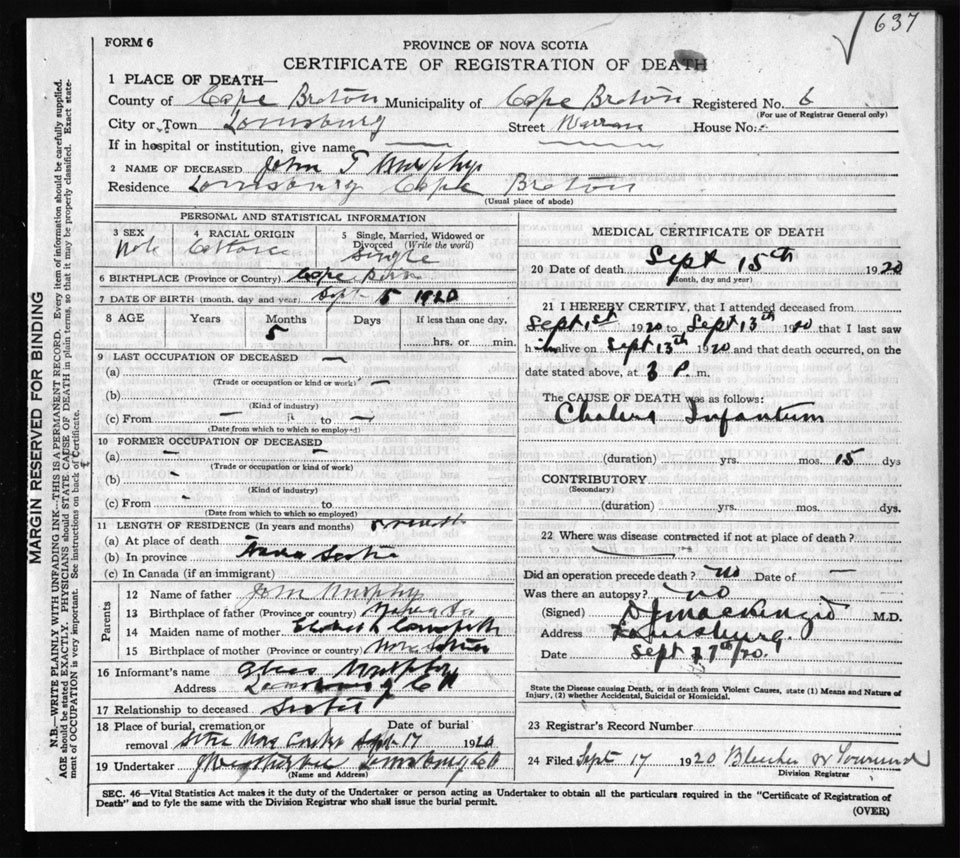 637
FORM 6
PROVINCE OF NOVA SCOTIA
CERTIFICATE OF REGISTRATION OF DEATH
1 PLACE OF DEATH—
County of Cape Breton Municipality of Cape Breton Registered No. 6
(For use of Registrar General only)
City or Town Louisburg Street Warren House No. -
If in hospital or institution, give name —
2 NAME OF DECEASED John T Murphy
Residence Louisburg Cape Breton
(Usual place of abode)
PERSONAL AND STATISTICAL INFORMATION
3 SEX 4 RACIAL ORIGIN 5 Single, Married, Widowed or
Divorced (Write the word)
Single
6 BIRTHPLACE (Province or Country) Cape
7 DATE OF BIRTH (month, day and year) Sept 5 1920
8 AGE Years Months Days If less than one day,
5
hrs. or min.
9 LAST OCCUPATION OF DECEASED —
(a) —
(Trade or occupation or kind of work)
(b)
(Kind of industry)
(c) From — to —
(Date from which to which so employed)
10 FORMER OCCUPATION OF DECEASED
(a) - -
(Trade or occupation or kind of work)
(b) -
(Kind of industry)
(c) From - to
(Date from which to which so employed)
11 LENGTH OF RESIDENCE (In years and months)
(a) At place of death
(b) In province Nova Scotia
(c) In Canada (if an immigrant)
Parents
12 Name of father John Murphy
13 Birthplace of father (Province or country)
14 Maiden name of mother
15 Birthplace of mother (Province or country) Nova Scotia
16 Informant's name Murphy
Address Louisburg C B
17 Relationship to deceased Sister
18 Place of burial, cremation or Date of burial
removal Sept 17 1920
19 Undertaker Louisburg C B
(Name and Address)
MEDICAL CERTIFICATE OF DEATH
20 Date of death Sept 15th 1920
(Month, day and year)
21 I HEREBY CERTIFY, that I attended deceased from
Sept 1st 1920 to Sept 13th 1920 that I last saw
him alive on Sept 13th 1920 and that death occurred, on the
date stated above, at 3 P. m.
The CAUSE OF DEATH was as follows:
Cholera Infantum
(duration) yrs. mos. 15 dys
CONTRIBUTORY
(Secondary)
(duration) yrs. mos. dys.
22 Where was disease contracted if not at place of death?
Did an operation precede death? No Date of —
Was there an autopsy? No
(Signed) D J MacKenzie M.D.
Address Louisburg.
Date Sept 17th/20.
State the Disease causing Death, or in death from Violent Causes, state (1) Means and Nature of
Injury, (2) whether Accidental, Suicidal or Homicidal.
23 Registrar's Record Number
24 Filed Sept 17 1920 Townsend
Division Registrar
SEC. 46—Vital Statistics Act makes it the duty of the Undertaker or person acting as Undertaker to obtain all the particulars required in the "Certificate of Registration of
Death" and to fyle the same with the Division Registrar who shall issue the burial permit.
(OVER)
MARGIN RESERVED FOR BINDING
N.B.—WRITE PLAINLY WITH UNFADING INK—THIS IS A PERMANENT RECORD. Every item of information should be carefully supplied.
AGE should be stated EXACTLY. PHYSICIANS should STATE CAUSE OF DEATH in plain terms, so that it may be properly classified. Exact state-
ment of OCCUPATION is very important. See instructions on back of Certificate.